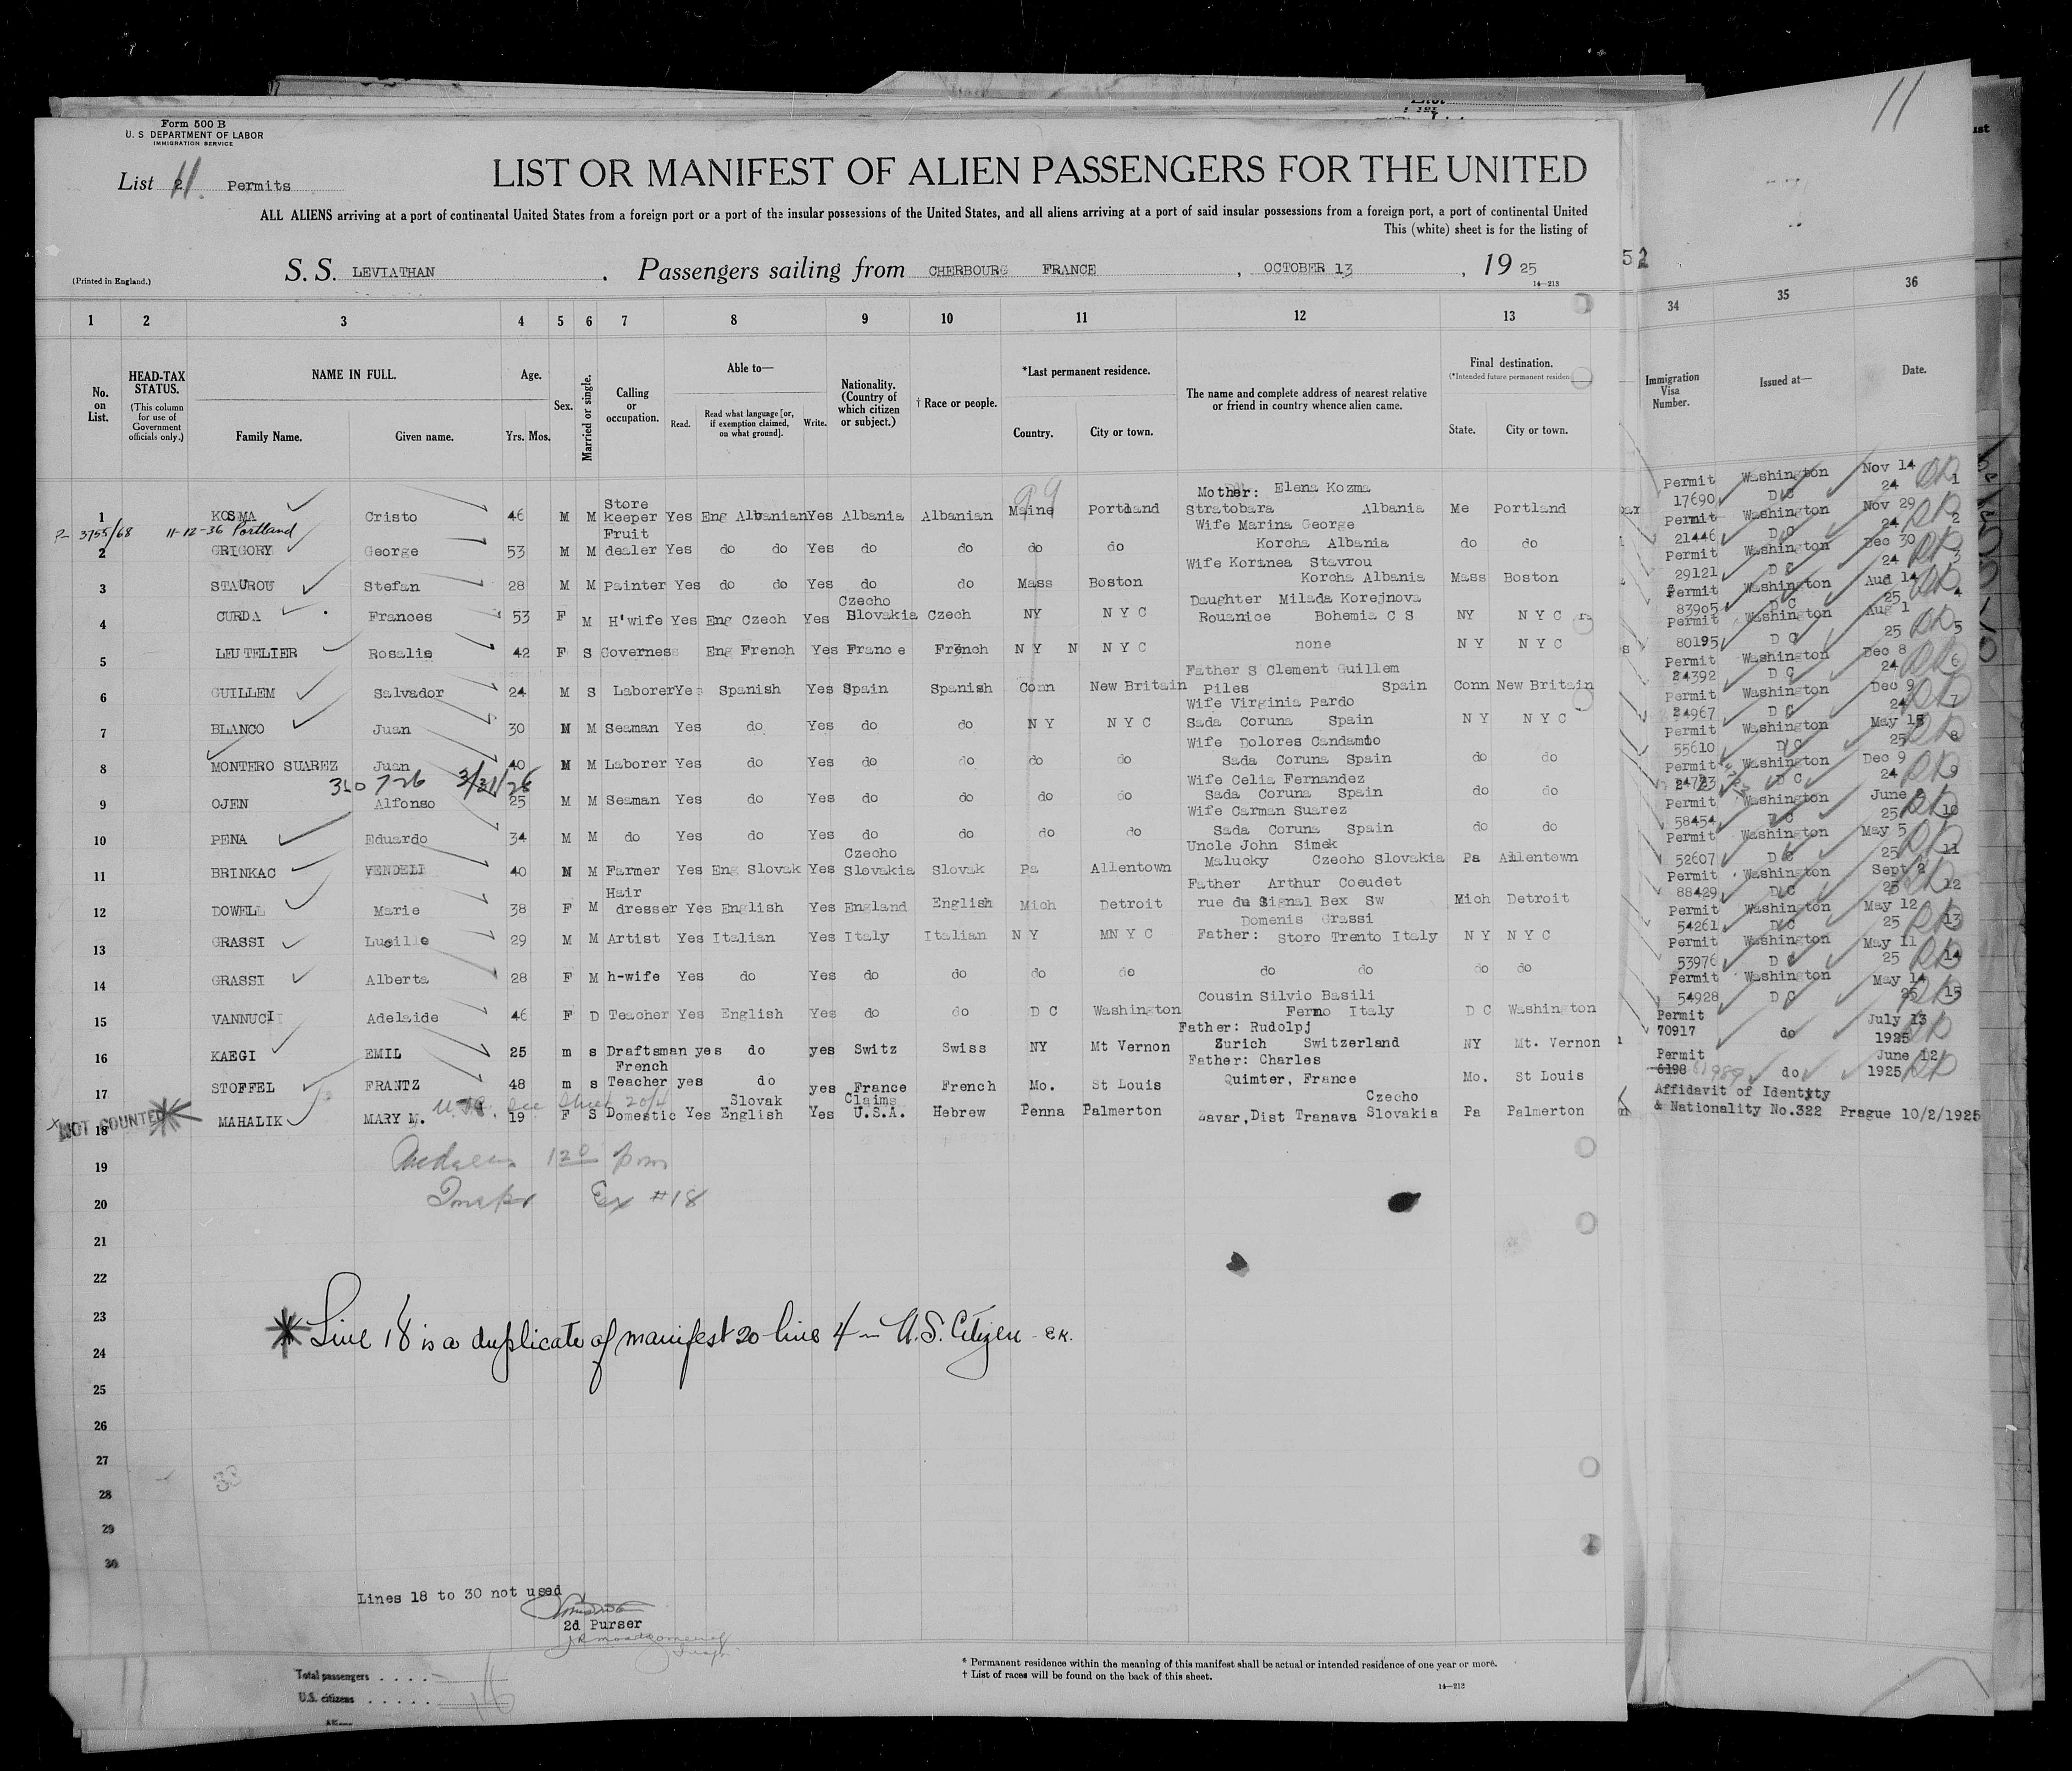 11
Form 500 B
U. S DEPARTMENT OF LABOR
IMMIGRATION SERVICE
List 11. Permits
LIST OR MANIFEST OF ALIEN PASSENGERS FOR THE UNITED
ALL ALIENS arriving at a port of continental United States from a foreign port or a port of the insular possessions of the United States, and all aliens arriving at a port of said insular possessions from a foreign port, a port of continental United
This (white) sheet is for the listing of
(Printed in England.)
S. S. LEVIATHAN . Passengers sailing from CHERBOURG FRANCE , OCTOBER 13 , 19 25
14—213
52
1 2 3 4 5 6 7 8 9 10 11 12 13 34 35 36
No. on List.
HEAD-TAX STATUS.
(This column for use of Government officials only.)
NAME IN FULL.
Family Name. Given name.
Age.
Yrs. Mos.
Sex.
Married or single.
Calling or occupation.
Able to—
Read. Read what language [or, if exemption claimed, on what ground]. Write.
Nationality. (Country of which citizen or subject.)
† Race or people.
*Last permanent residence.
Country. City or town.
The name and complete address of nearest relative or friend in country whence alien came.
Final destination.
(*Intended future permanent residen
State. City or town.
Immigration Visa Number.
Issued at—
Date.
1 KOSMA Cristo 46 M M Store keeper Yes Eng Albanian Yes Albania Albanian Maine Portland Mother: Elena Kozma Stratobara Albania Me Portland Permit 17690 Washington D C Nov 14 24 1
3755/68 11-12-36 Portland
2 GRIGORY George 53 M M Fruit dealer Yes do do Yes do do do do Wife Marina George Korcha Albania do do Permit 21446 Washington D C Nov 29 24 2
3 STAUROU Stefan 28 M M Painter Yes do do Yes do do Mass Boston Wife Korinea Stavrou Korcha Albania Mass Boston Permit 29121 Washington D C Dec 30 24 3
4 CURDA Frances 53 F M H'wife Yes Eng Czech Yes Czecho Slovakia Czech NY N Y C Daughter Milada Korejnova Rouanice Bohemia C S NY N Y C Permit 83905 Washington D C Aug 14 25 4
5 LEUTELIER Rosalie 42 F S Governess Eng French Yes France French N Y N N Y C none N Y N Y C Permit 80195 Washington D C Aug 1 25 5
6 GUILLEM Salvador 24 M S Laborer Yes Spanish Yes Spain Spanish Conn New Britain Father S Clement Guillem Piles Spain Conn New Britain Permit 24392 Washington D C Dec 8 24 6
7 BLANCO Juan 30 M M Seaman Yes do Yes do do N Y N Y C Wife Virginia Pardo Sada Coruna Spain N Y N Y C Permit 24967 Washington D C Dec 9 24 7
8 MONTERO SUAREZ Juan 40 M M Laborer Yes do Yes do do do do Wife Dolores Candamio Sada Coruna Spain do do Permit 55610 Washington D C May 15 25 8
310726 3/31/26
9 OJEN Alfonso 25 M M Seaman Yes do Yes do do do do Wife Celia Fernandez Sada Coruna Spain do do Permit Washington D C Dec 9 24 9
10 PENA Eduardo 34 M M do Yes do Yes do do do do Wife Carman Suarez Sada Coruna Spain do do Permit 58454 Washington D C June 25 10
11 BRINKAC VENDELI 40 M M Farmer Yes Eng Slovak Yes Czecho Slovakia Slovak Pa Allentown Uncle John Simek Malucky Czecho Slovakia Pa Allentown Permit 52607 Washington D C May 5 25 11
12 DOWELL Marie 38 F M Hair dresser Yes English Yes England English Mich Detroit Father Arthur Coeudet rue du Signal Bex Sw Mich Detroit Permit 88429 Washington D C Sept 2 25 12
13 GRASSI Lucille 29 M M Artist Yes Italian Yes Italy Italian N Y MN Y C Father: Domenis Grassi Storo Trento Italy N Y N Y C Permit 54261 Washington D C May 12 25 13
14 GRASSI Alberta 28 F M h-wife Yes do Yes do do do do do do do do Permit 53976 Washington D C May 11 25 14
15 VANNUCI Adelaide 46 F D Teacher Yes English Yes do do D C Washington Cousin Silvio Basili Fermo Italy D C Washington Permit 54928 Washington D C May 14 25 15
16 KAEGI EMIL 25 m s Draftsman yes do yes Switz Swiss NY Mt Vernon Father: Rudolpj Zurich Switzerland NY Mt. Vernon Permit 70917 do July 13 1925
17 STOFFEL FRANTZ 48 m s French Teacher yes do yes France French Mo. St Louis Father: Charles Quimter, France Mo. St Louis Permit 6198 61989 do June 12 1925
NOT COUNTED
18 MAHALIK MARY M. 19 F S Domestic Yes Slovak English Yes Claims U.S.A. Hebrew Penna Palmerton Zavar, Dist Tranava Czecho Slovakia Pa Palmerton Affidavit of Identyty & Nationality No.322 Prague 10/2/1925
19
20 Ex #18
21
22
23
Line 18 is a duplicate of manifest 20 line 4 — U.S. Citizen - ER.
24
25
26
27
28
29
30
Lines 18 to 30 not used
2d Purser
Total passengers . . . .
U.S. citizens . . . . .
Aliens
* Permanent residence within the meaning of this manifest shall be actual or intended residence of one year or more.
† List of races will be found on the back of this sheet.
14—213